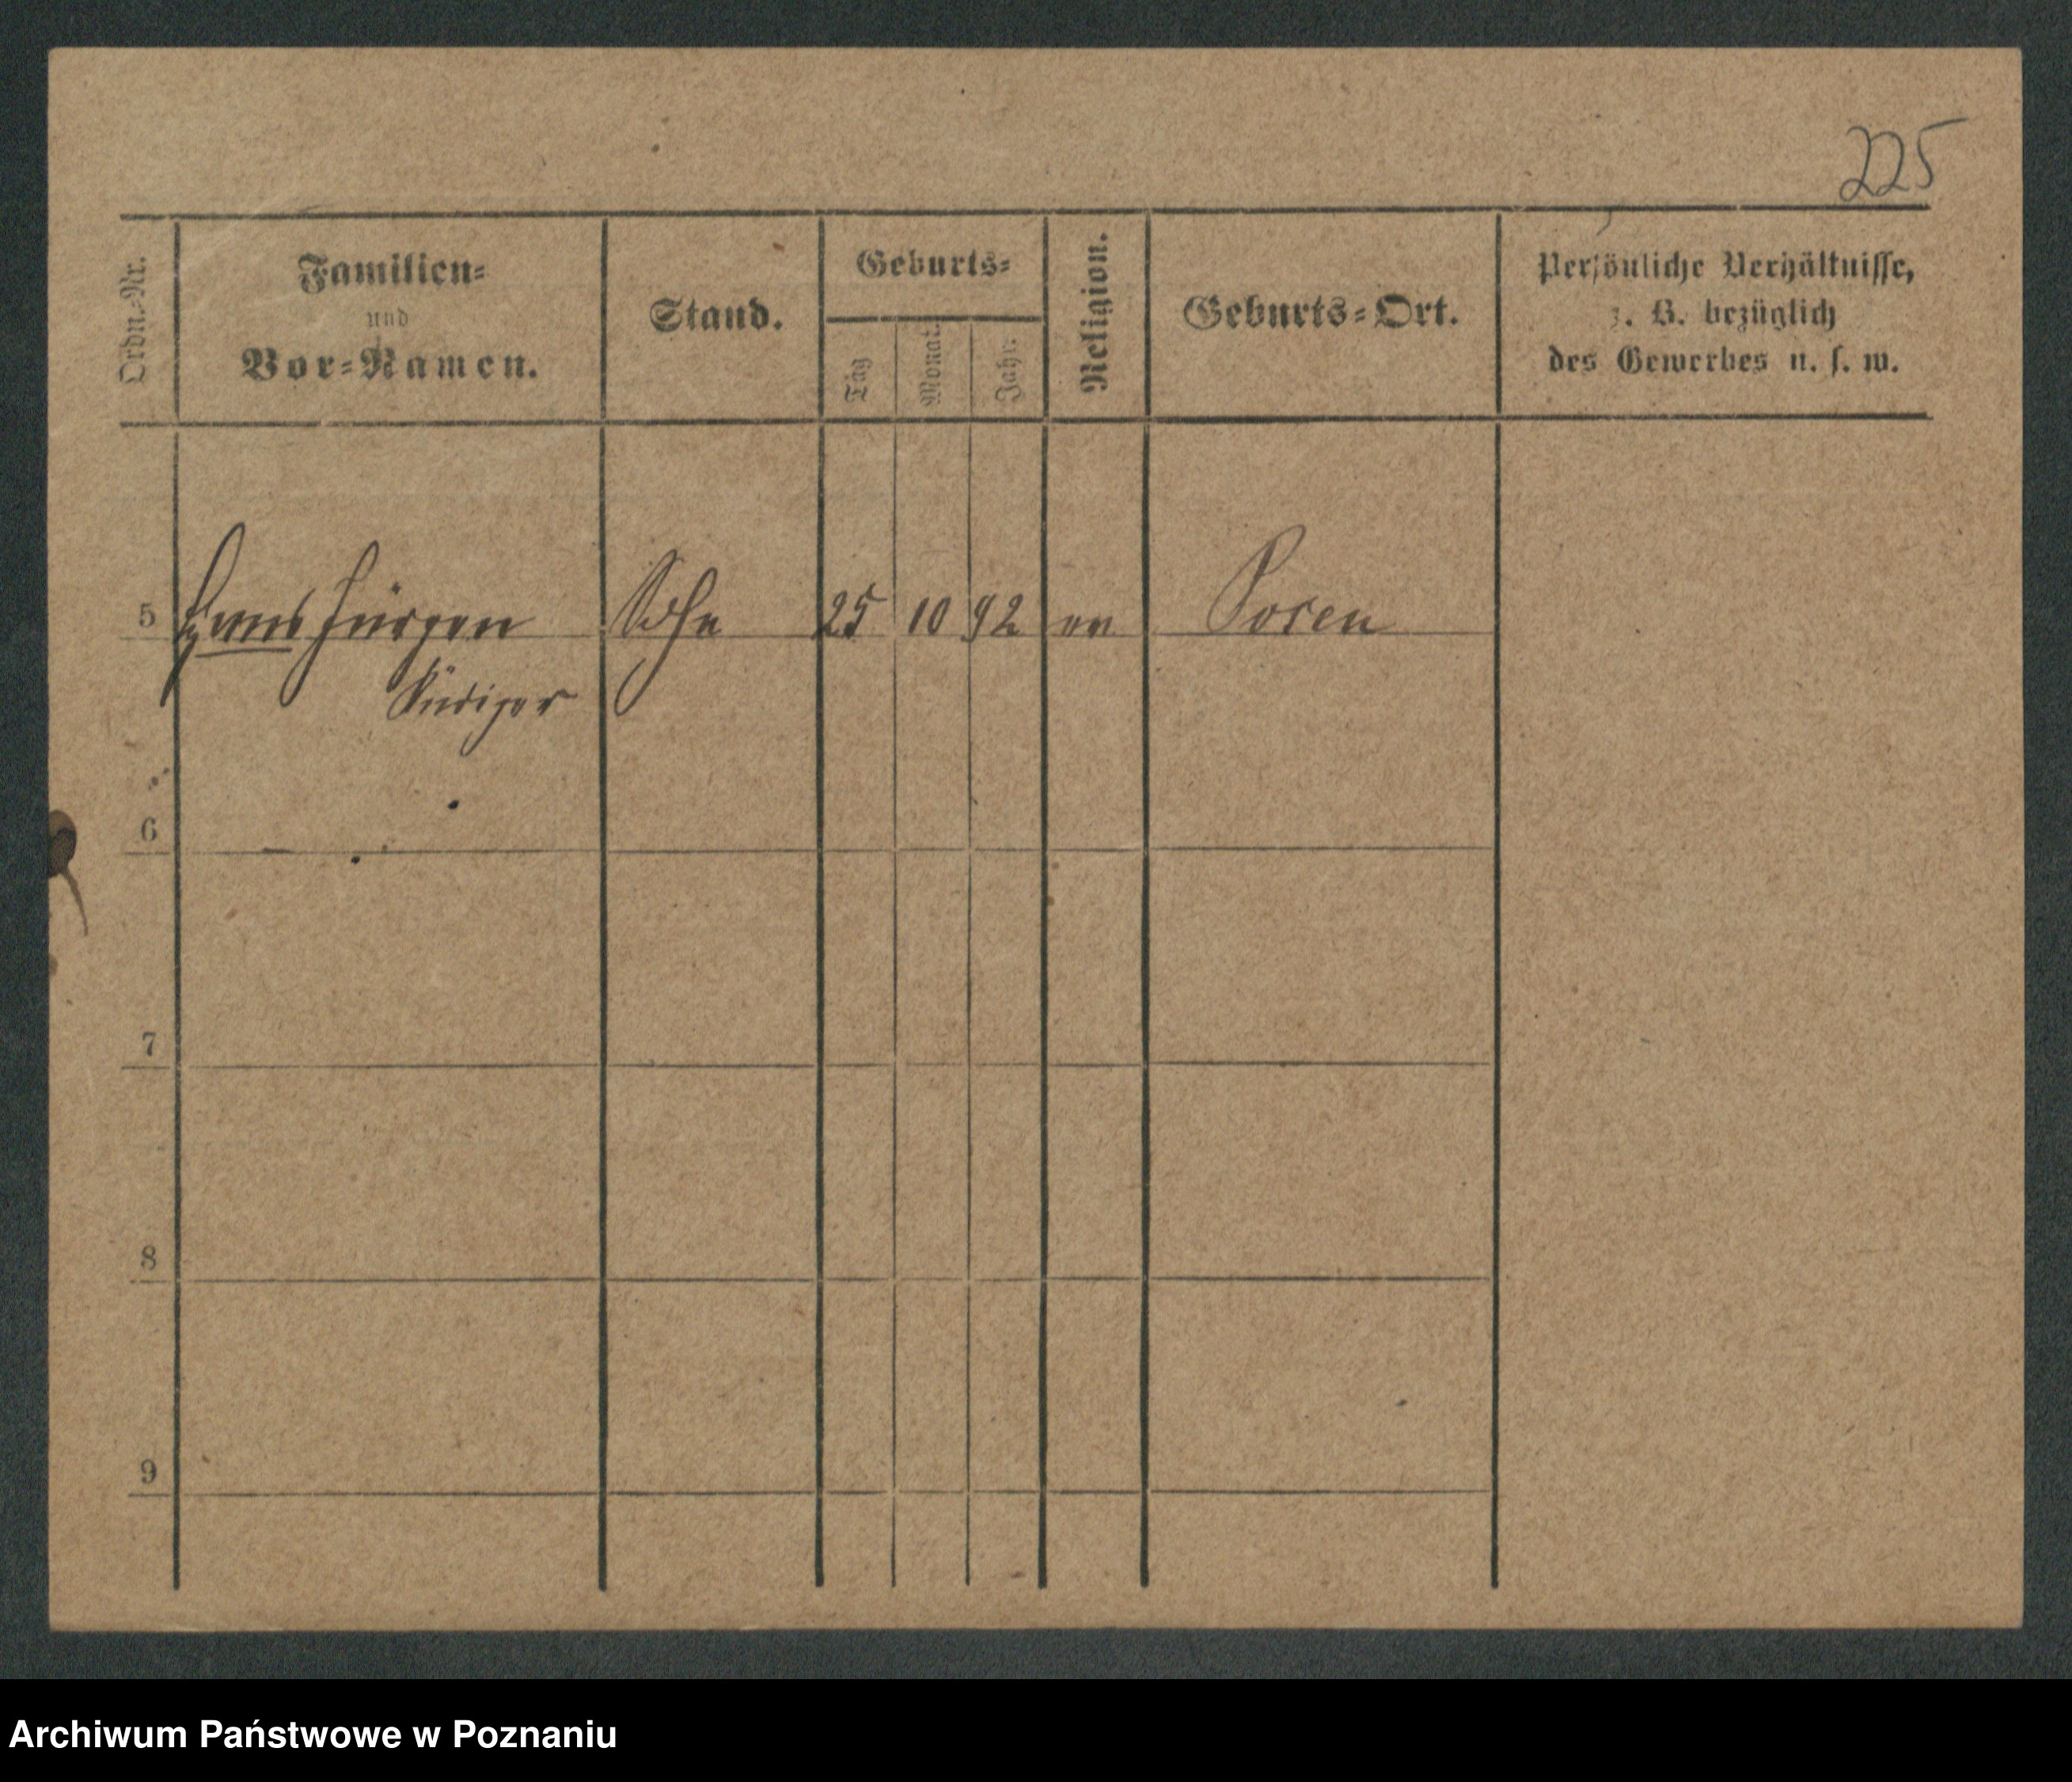 225
Ordn.-Nr.
Familien-
und
Vor-Namen.
Stand.
Geburts-
Tag
Monat.
Jahr.
Religion.
Geburts-Ort.
Persönliche Verhältnisse,
z. B. bezüglich
des Gewerbes u. s. w.
5 Hans Jürgen Sohn 25 10 92 ev Posen
Rüdiger
6
7
8
9
Archiwum Państwowe w Poznaniu